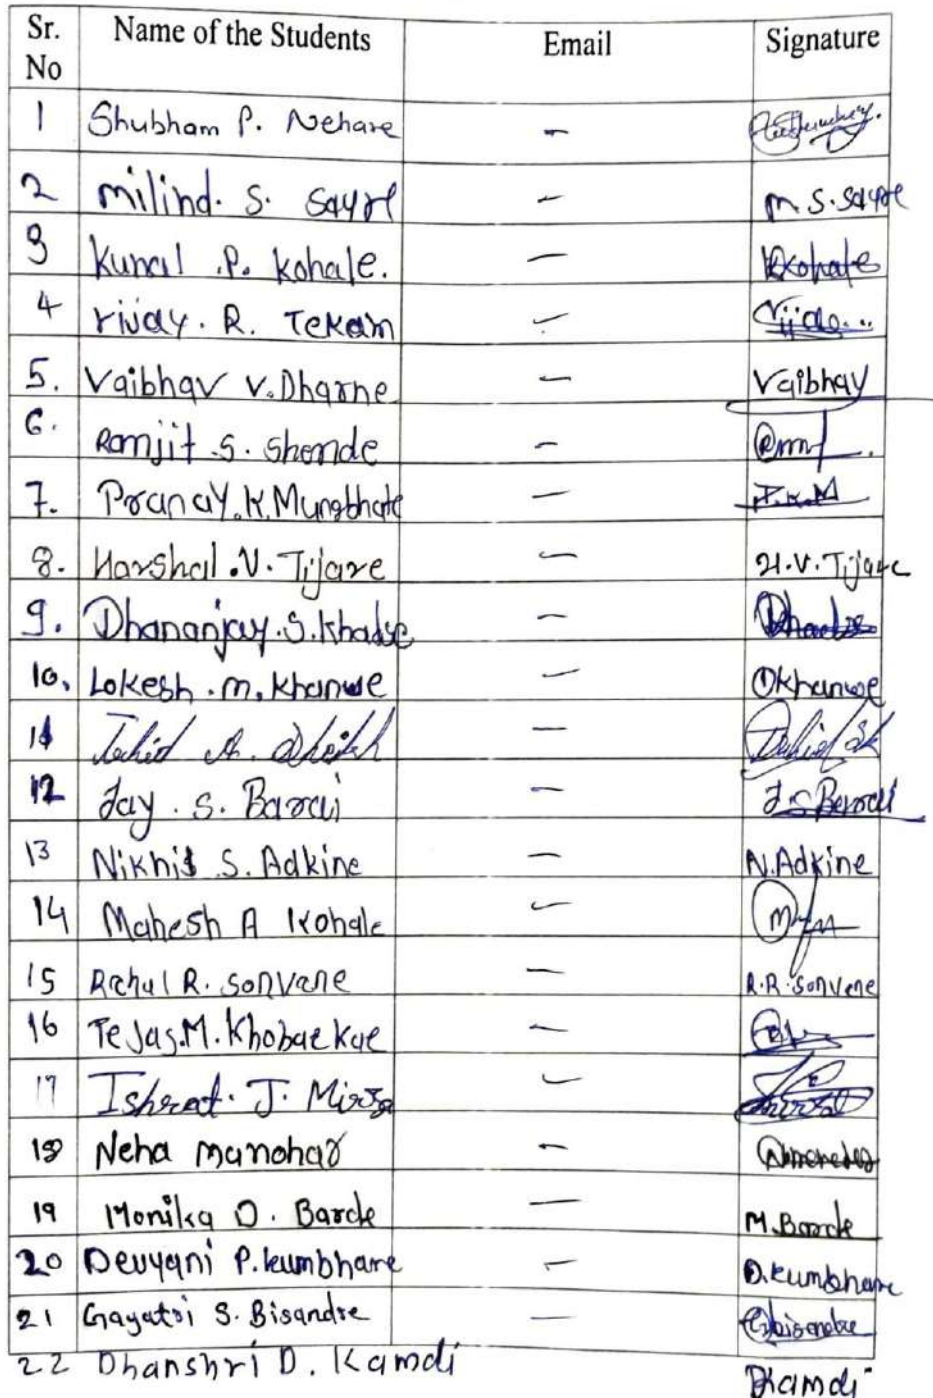 Sr. No Name of the Students Email Signature
1 Shubham P. Nehare –
2 Milind. S. Sayre – M.S.Sayre
3 Kunal .P. Kohale. – Kkohale
4 Vijay. R. Tekam – Vijay...
5. Vaibhav V.Dharne – Vaibhav
6. Ramjit .S. Shende –
7. Pranay.K.Mungbhate – P.K.M
8. Harshal .V. Tijare – H.V.Tijare
9. Dhananjay.S.Khadse –
10. Lokesh .M. Khanwe – Khanwe
11 Tahid A. Sheikh –
12 Jay . S. Barai – J.S Barai
13 Nikhil S. Adkine – N.Adkine
14 Mahesh A Kohale –
15 Rahul R. Sonvane – R.R.Sonvene
16 Tejas.M. Khobaekae –
17 Ishrat. J. Mirza –
18 Neha Manohar –
19 Monika D. Barde – M.Barde
20 Devyani P.Kumbhare – D.Kumbhare
21 Gayatri S. Bisandre – Gbisandre
22 Dhanshri D. Kamdi Dkamdi